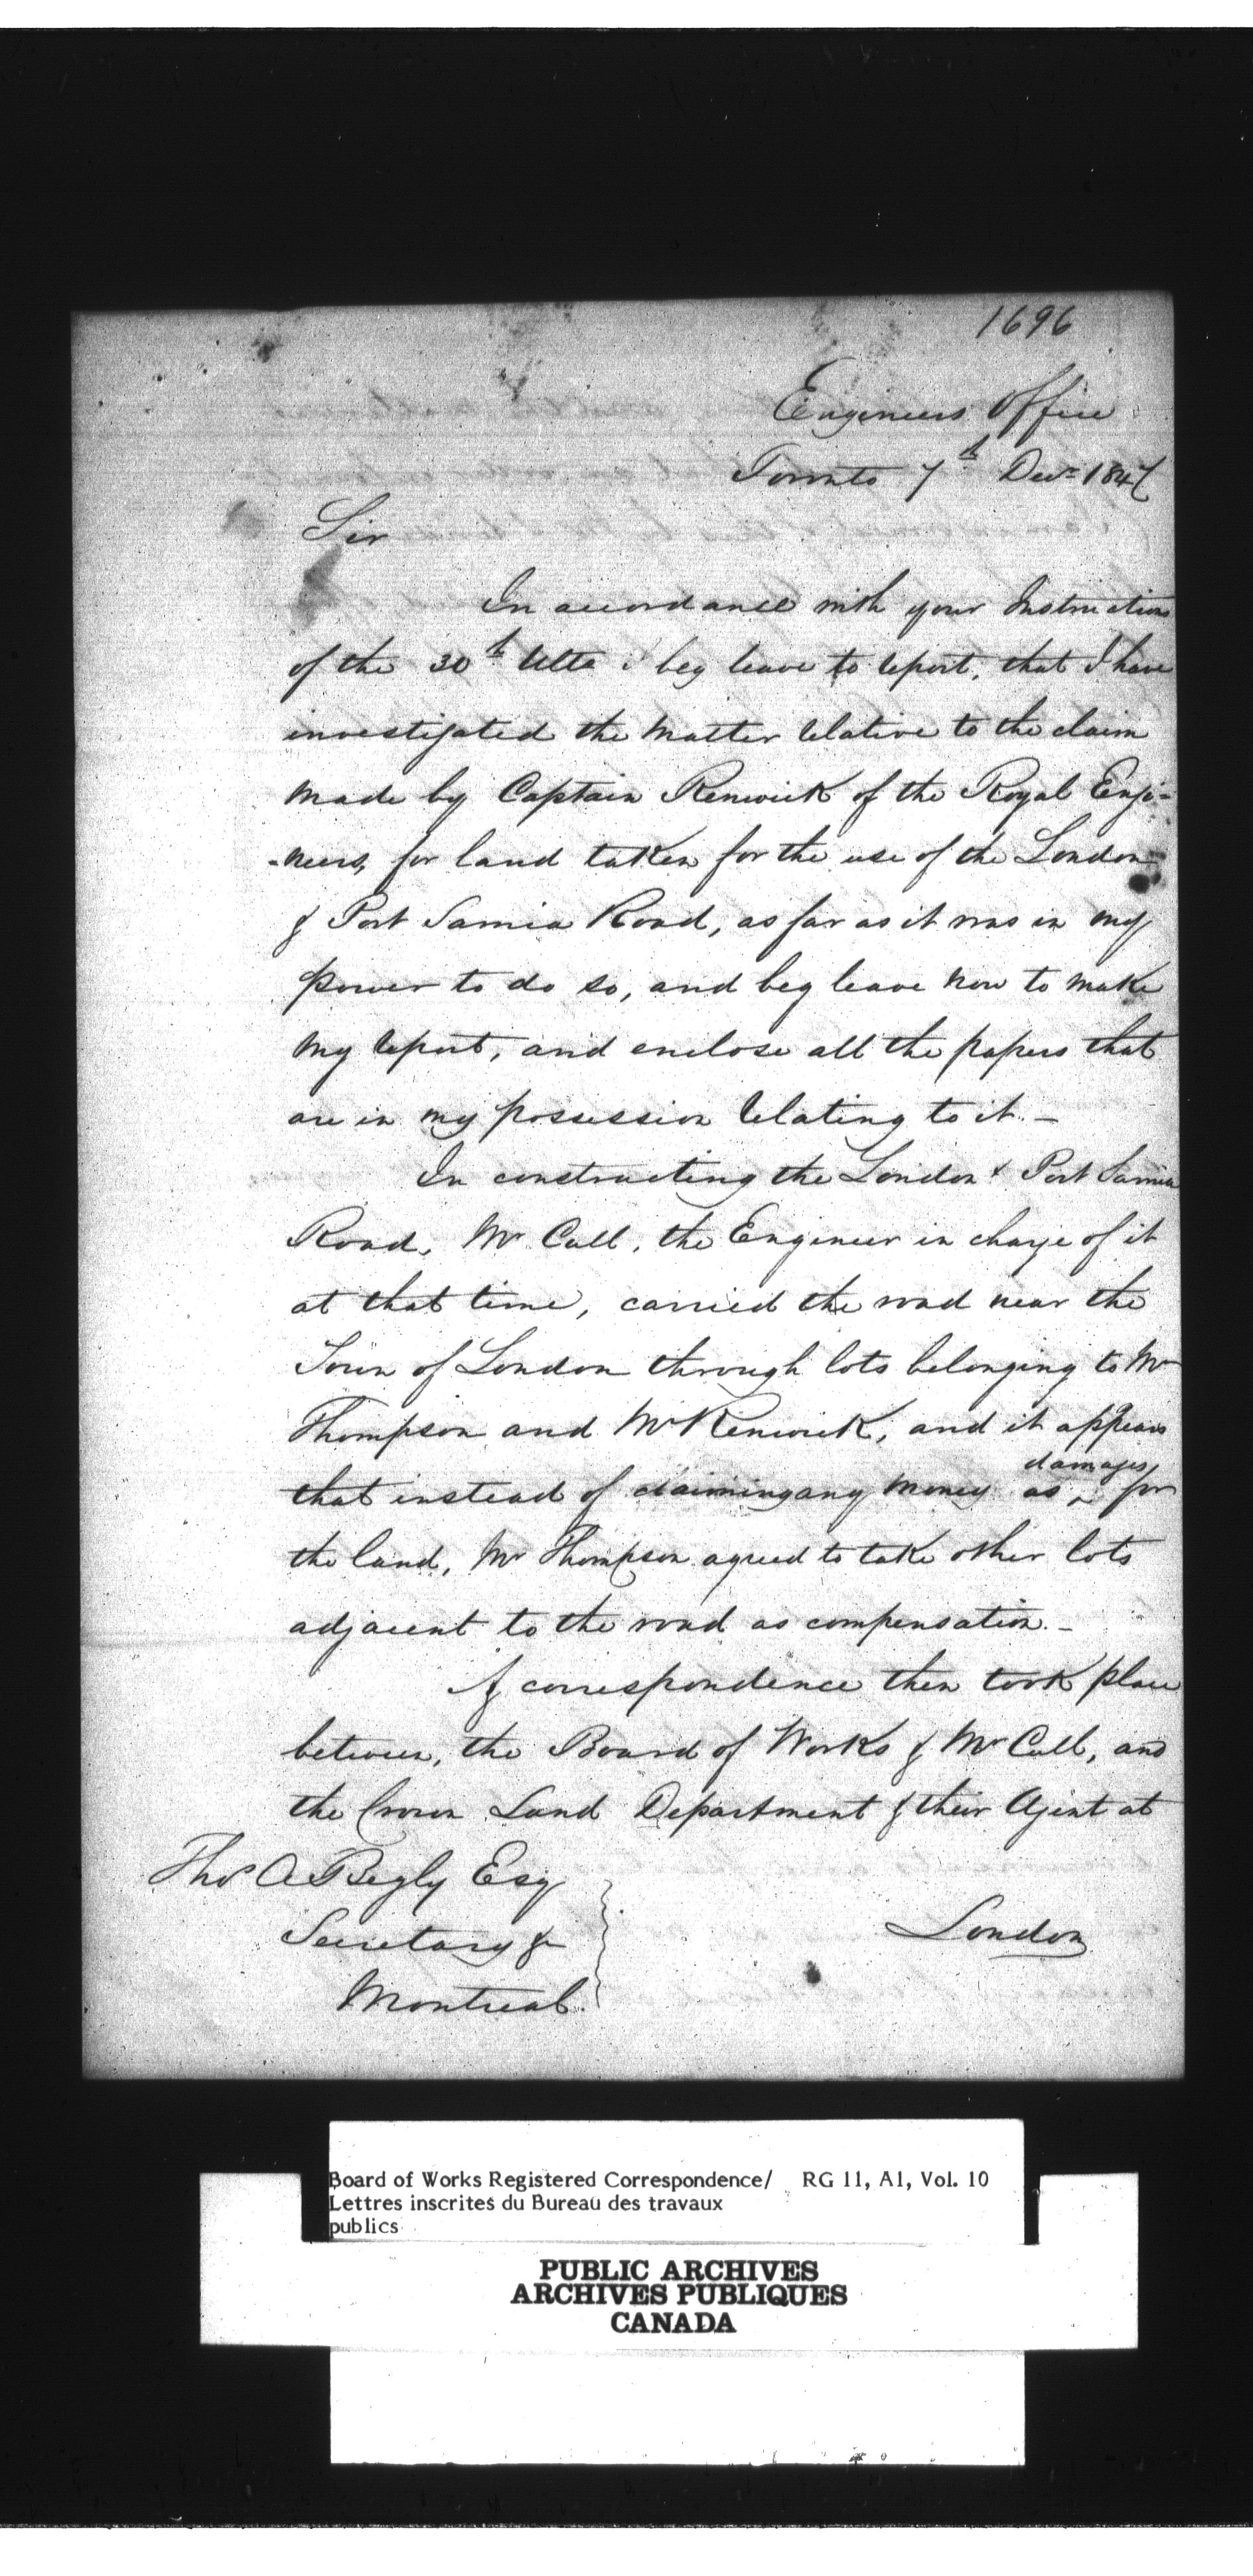 1696
Engineers Office
Toronto 7th Decr 1847
Sir
In accordance with your Instructions
of the 30th Ulto i beg leave to report, that I have
investigated the matter relative to the claim
made by Captain Renwick of the Royal Engi-
-neers, for land taken for the use of the London
& Port Sarnia Road, as far as it was in my
power to do so, and beg leave now to make
my report, and enclose all the papers that
are in my possession relating to it. -
In constructing the London & Port Sarnia
Road, Mr Cull, the Engineer in charge of it
at that time, carried the road near the
Town of London through lots belonging to Mr
Thompson and Mr Renwick, and it appears
damages
that instead of claiming any money as ^ for
the land, Mr Thompson agreed to take other lots
adjacent to the road as compensation. -
A correspondence then took place
between, the Board of Works & Mr Cull, and
the Crown Land Department & their Agent at
Thos A Begly Esq
Secretary &
Montreal.
London
Board of Works Registered Correspondence/ RG 11, A1, Vol. 10
Lettres inscrites du Bureau des travaux
publics
PUBLIC ARCHIVES
ARCHIVES PUBLIQUES
CANADA